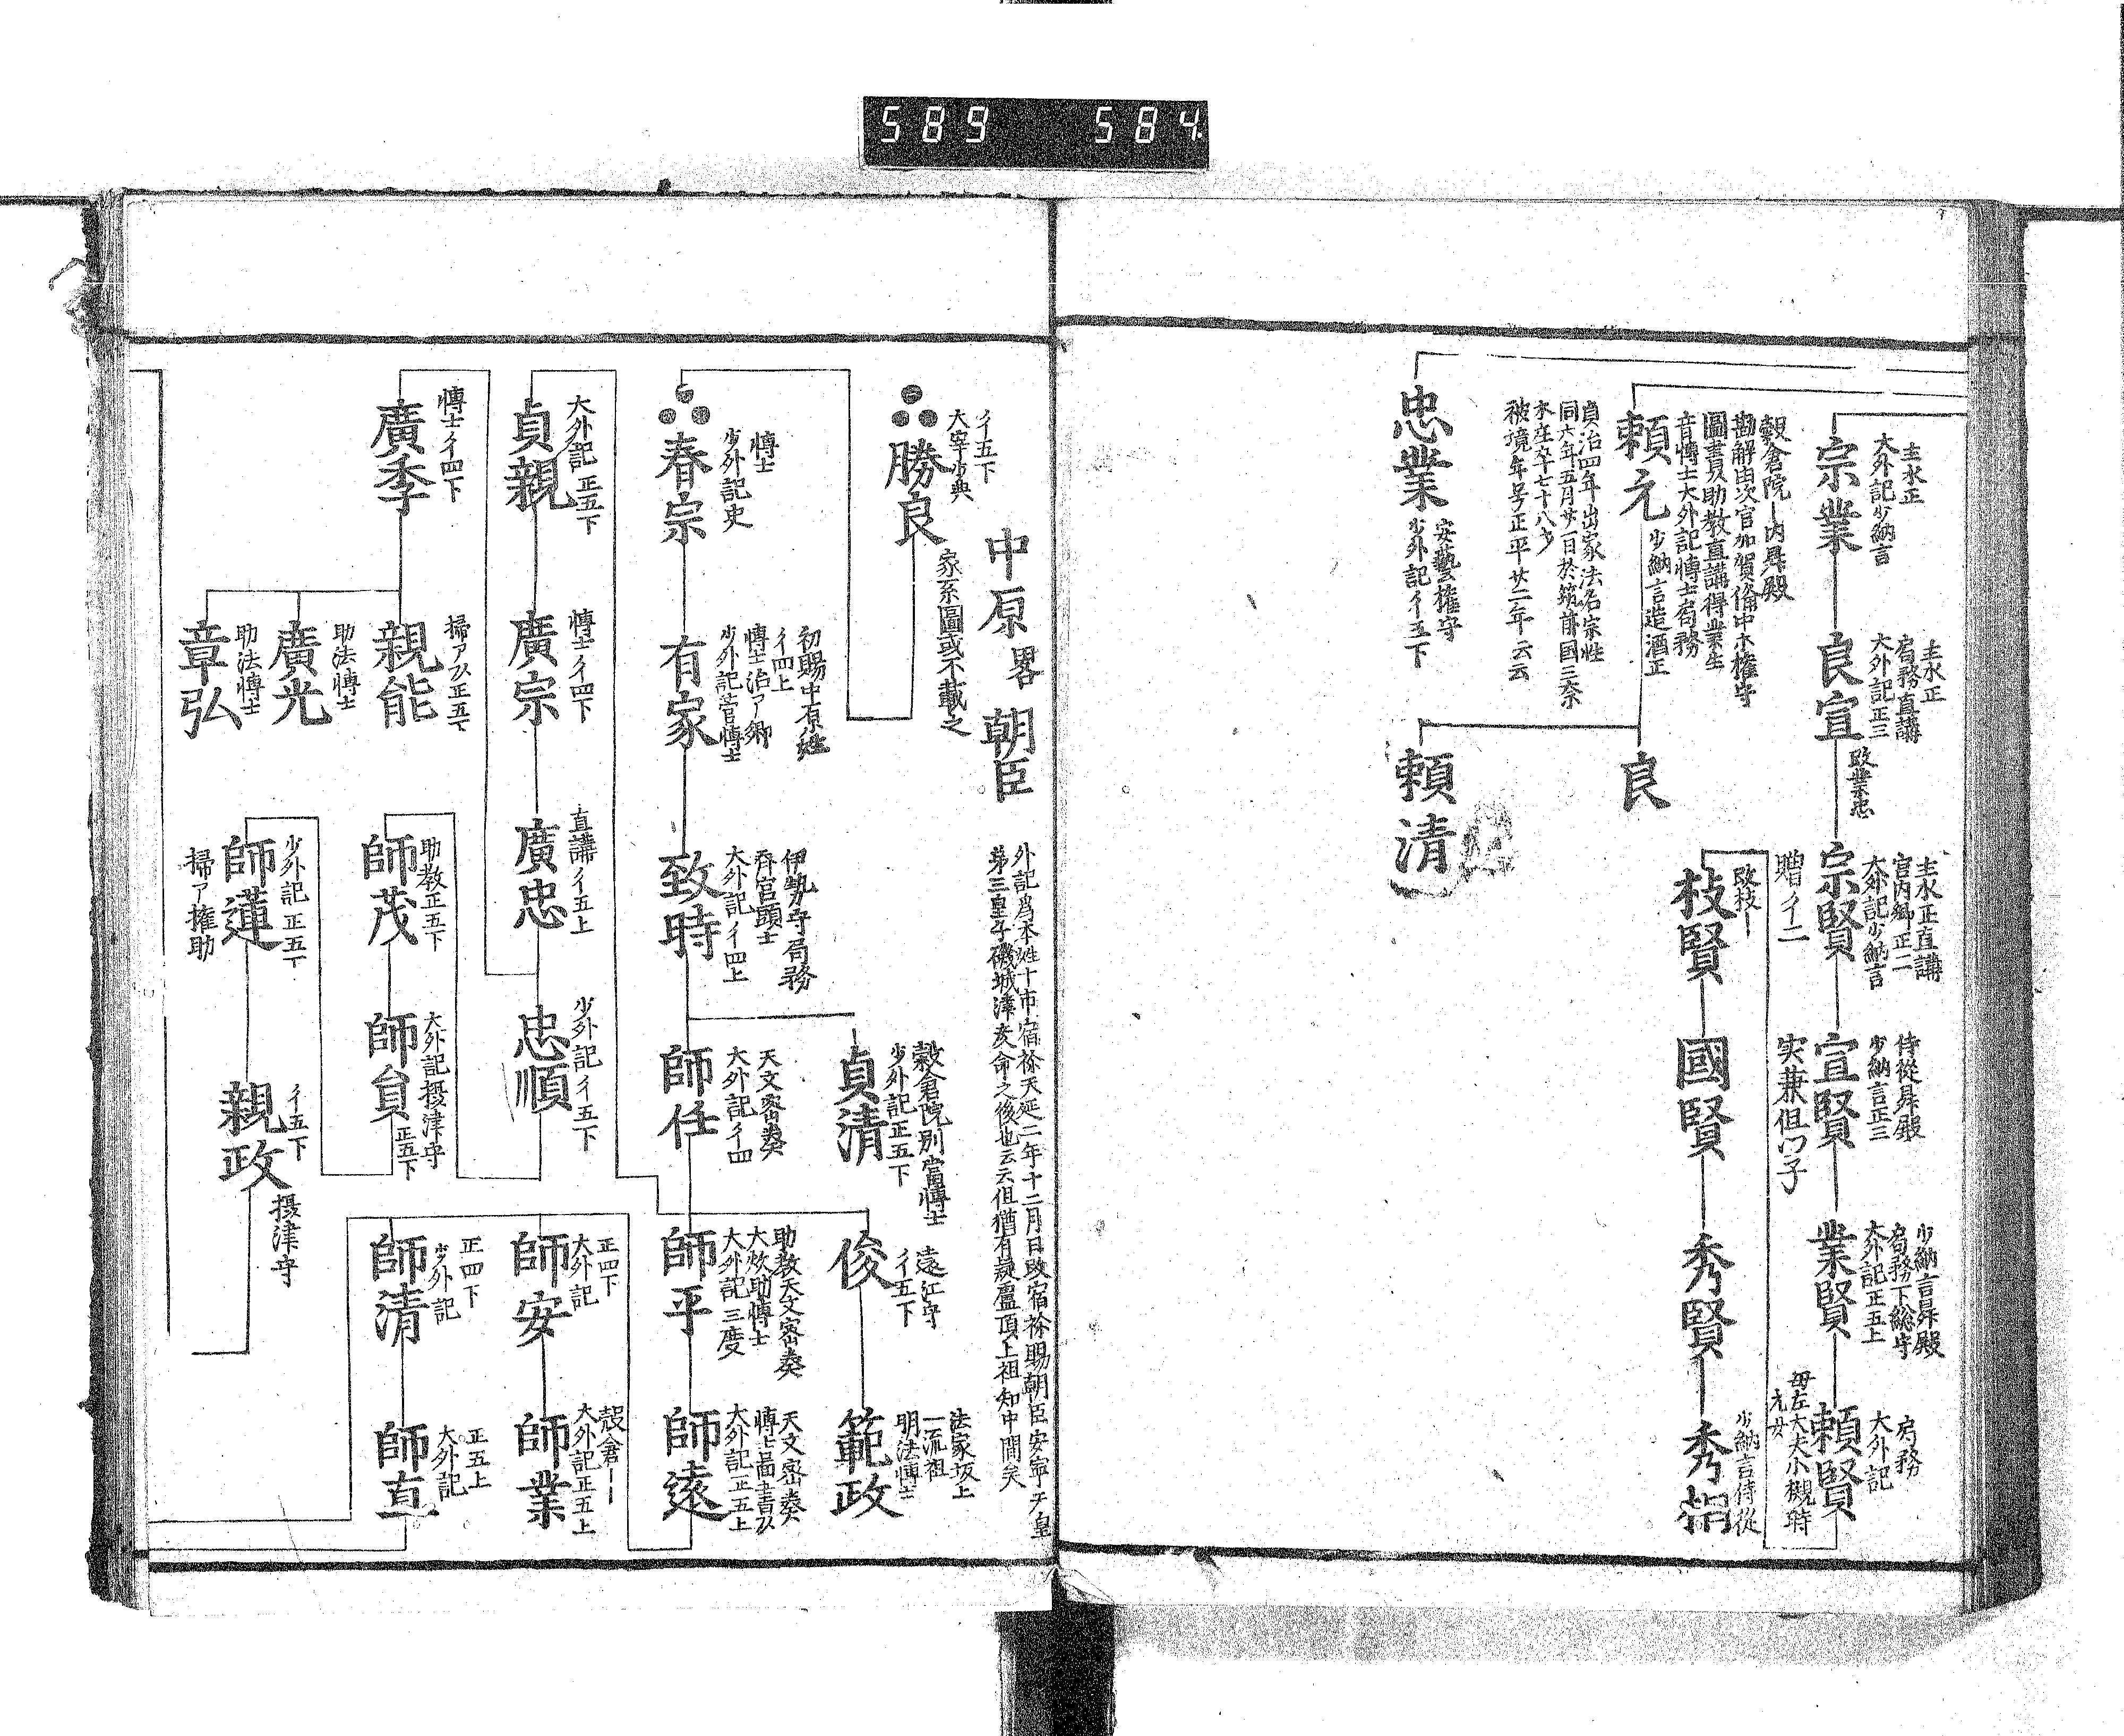 589 584
主水正
大外記少納言
宗業
主水正
局務直講
大外記正三
良宣
改業忠
主水正直講
宮内卿正二
大外記少納言
宗賢
贈イ二
侍從昇殿
少納言正三
宣賢
実兼俱卜子
少納言昇殿
局務下総守
大外記正五上
業賢
局務
大外記
頼賢
改枝ー
枝賢
國賢
秀賢
少納言侍從
秀相
穀倉院ー内昇殿
勘解由次官加賀備中木權守
圖書頁助教直講得業生
音博士大外記博士局務
頼元
少納言造酒正
貞治四年出家法名宗性
同六年五月廿一日於筑前國三奈
木庄卒七十八才
彼境年号正平廿二年云云
良
頼清
忠業
安藝權守
少外記イ五下
中原畧朝臣
外記爲本姓十市宿祢天延二年十二月日改宿祢賜朝臣安寧天皇
第三皇子磯城津彦命之後也云云但猶有疑盧頂上祖知中間矣
イ五下
大宰少典
勝良
家系圖或不載之
博士
少外記史
春宗
初賜中原姓
イ四上
博士治ア卿
少外記菅博士
有家
伊勢守局務
斉宮頭士
大外記イ四上
致時
穀倉院別當博士
少外記正五下
貞清
遠江守
イ五下
俊
法家坂上
一流祖
明法博士
範政
天文密奏
大外記イ四
師任
助教天文密奏
大炊助博士
大外記三度
師平
天文密奏
博士啚書以
大外記正五上
師遠
大外記正五下
貞親
博士イ四下
廣宗
直講イ五上
廣忠
少外記イ五下
忠順
正四下
大外記
師安
穀倉ー
大外記正五上
師業
博士イ四下
廣季
掃ア以正五下
親能
助法博士
廣光
助法博士
章弘
助教正五下
師茂
大外記摂津守
正五下
師貟
正四下
少外記
師清
正五上
大外記
師直
少外記正五下
師蓮
掃ア權助
イ五下
親政
摂津守